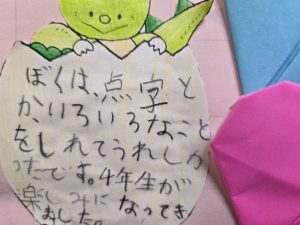 ぼくは、点字と
か、いろいろなこと
をしれてうれしか
ったです。4年生が
楽しみになってき
ました。